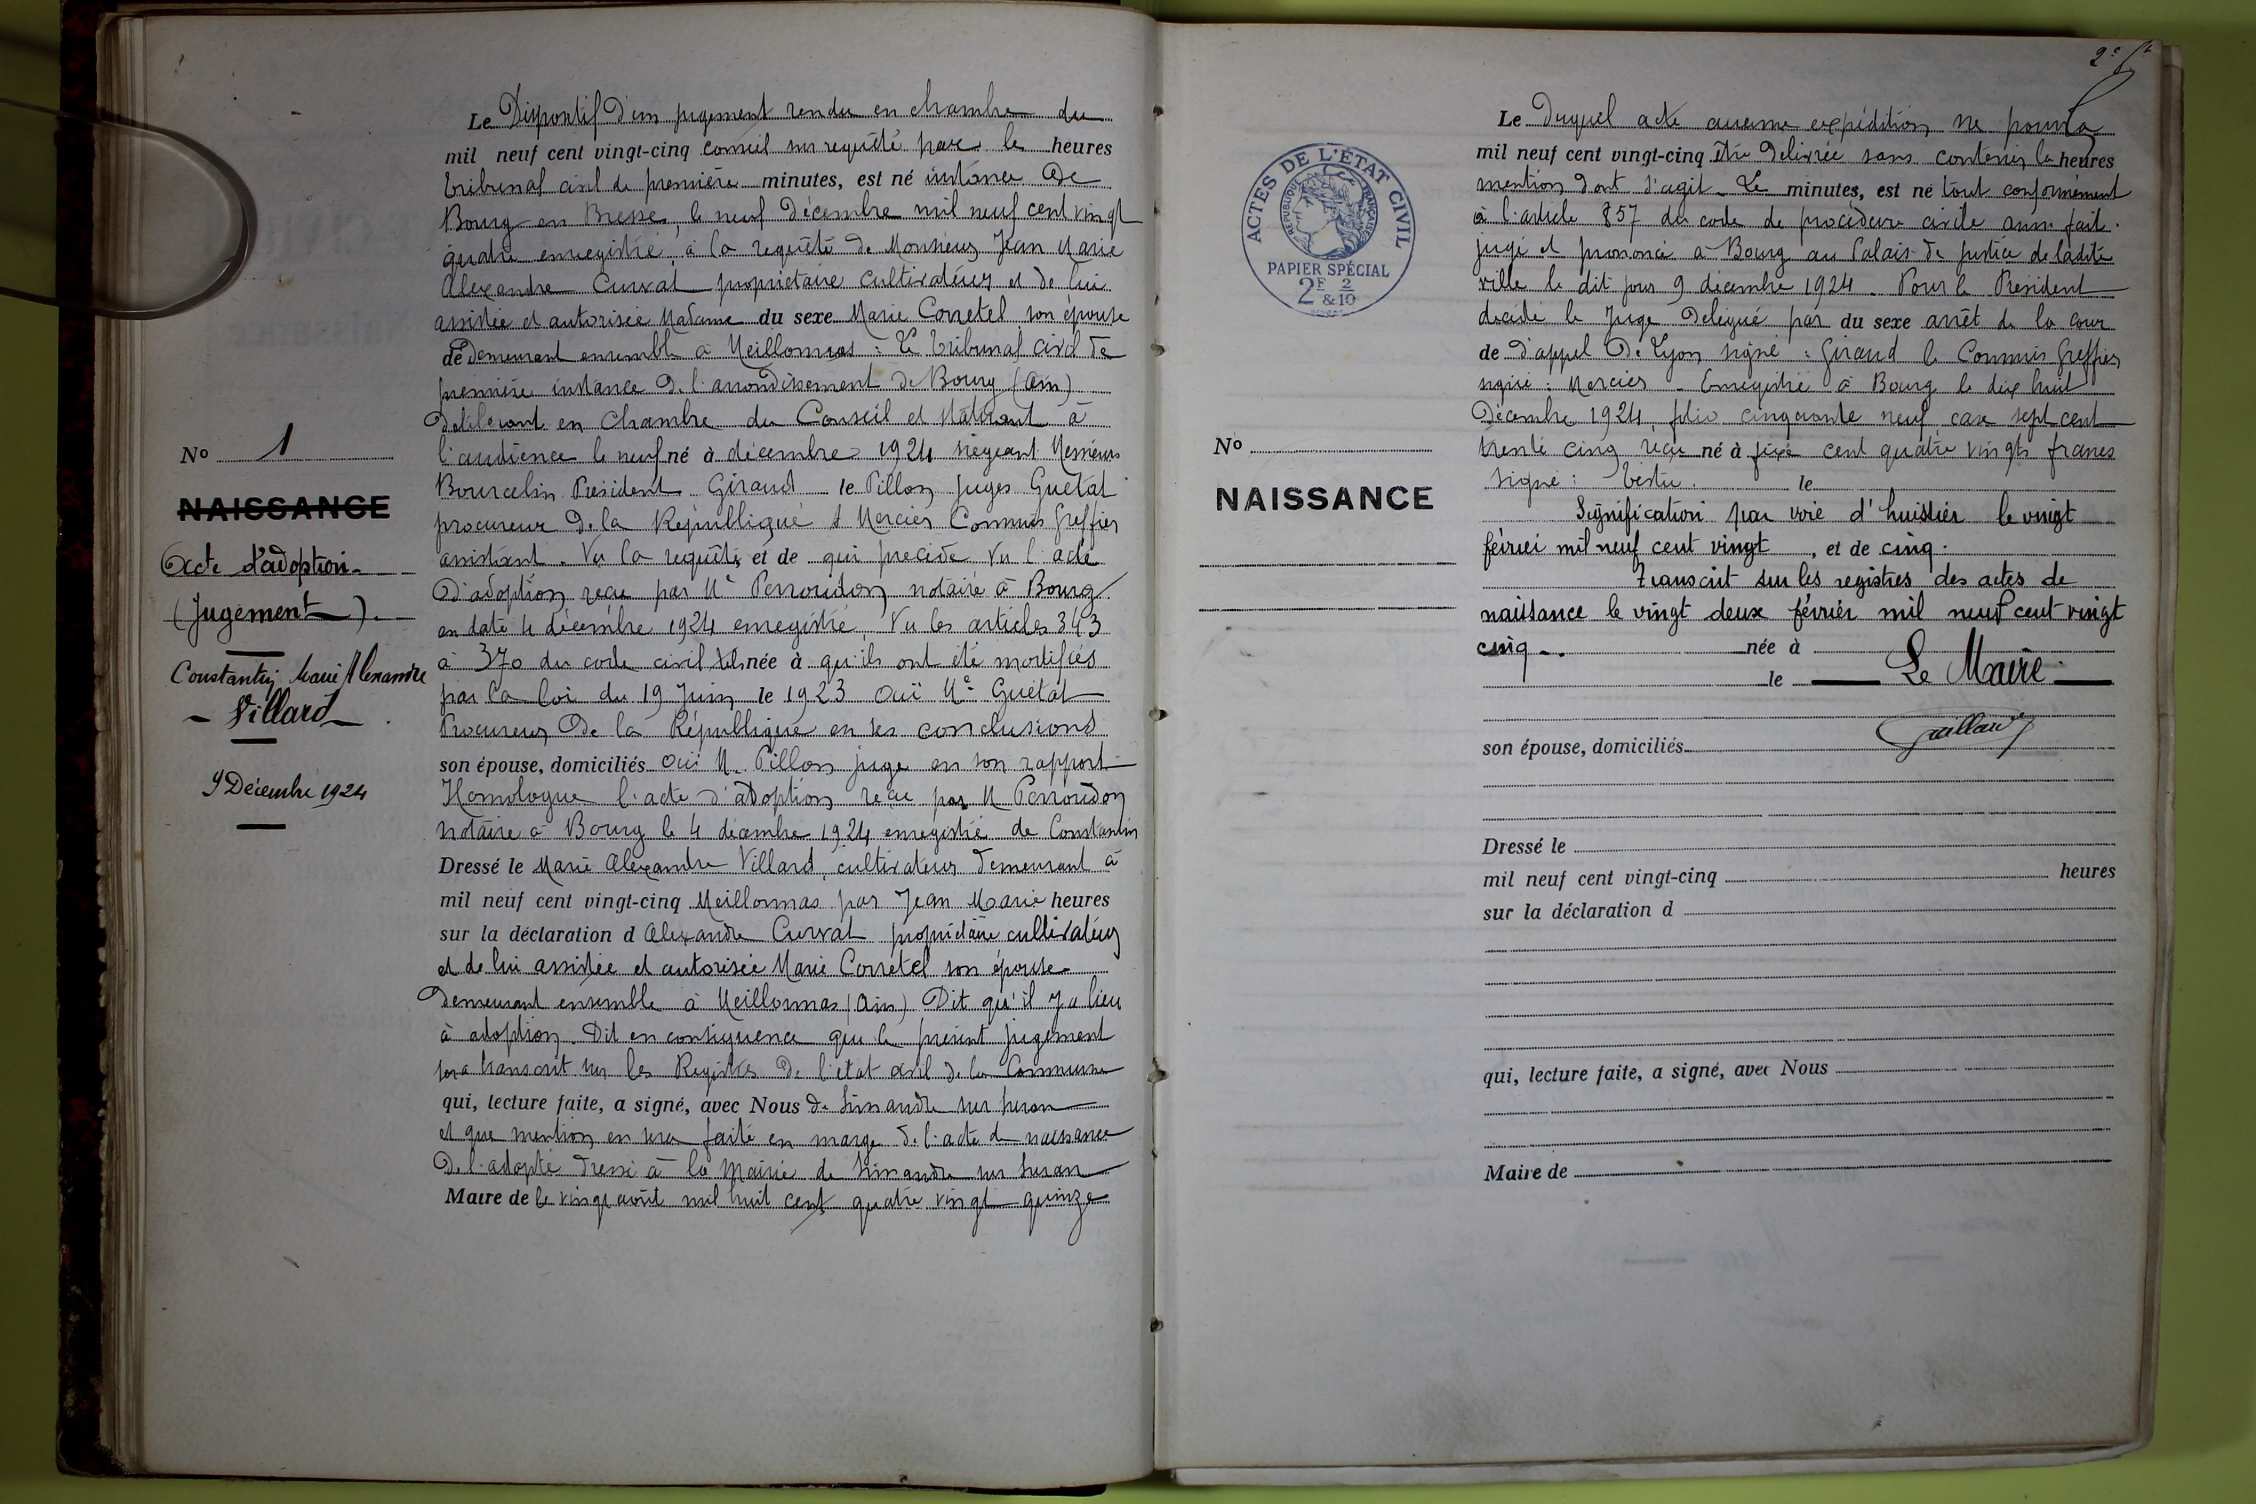 Le Dispositif d'un jugement rendu en chambre du
mil neuf cent vingt-cinq conseil sur requête par le heures
tribunal civil de première minutes, est né instance de
Bourg en Bresse, le neuf Décembre mil neuf cent vingt
quatre enregistré, à la requête de Monsieur Jean Marie
Alexandre Curvat propriétaire cultivateur et de lui
assistée et autorisée Madame du sexe Marie Corretel son épouse
de demeurant ensemble à Meillonnas : Le tribunal civil de
première instance de l'arrondissement de Bourg (Ain)
Délibérant en Chambre du Conseil et statuant à
l'audience le neuf né à décembre 1924 siégeant Messieurs
Bourcelin Président Giraud le Pillon juges Guétat
procureur de la République & Mercier Commis Greffier
assistant. Vu la requête et de qui précède Vu l'acte
d'adoption reçu par Me Perroudon notaire à Bourg
en date 4 décembre 1924 enregistré, Vu les articles 343
à 370 du code civil tels née à qu'ils ont été modifiés
par la loi du 19 Juin le 1923 Ouï Me Guétat
Procureur de la République en ses conclusions
son épouse, domiciliés Ouï M. Pillon juge en son rapport
Homologue l'acte d'adoption reçu par M Perroudon
notaire à Bourg le 4 décembre 1924 enregistré de Constantin
Dressé le Marie Alexandre Villard, cultivateur demeurant à
mil neuf cent vingt-cinq Meillonnas par Jean Marie heures
sur la déclaration d Alexandre Curvat propriétaire cultivateur
et de lui assistée et autorisée Marie Corretel son épouse
demeurant ensemble à Meillonnas (Ain) Dit qu'il y a lieu
à adoption. Dit en conséquence que le présent jugement
sera transcrit sur les Registres de l'état civil de la Commune
qui, lecture faite, a signé, avec Nous de Simandre sur Suran
et que mention en sera faite en marge de l'acte de naissance
de l'adopté dressé à la Mairie de Simandre sur Suran
Maire de le vingt août mil huit cent quatre vingt quinze
No 1
NAISSANCE
Acte d'adoption
(Jugement).
Constantin Marie Alexandre
Villard
9 Décembre 1924
2e
ACTES DE L'ÉTAT CIVIL
RÉPUBLIQUE FRANÇAISE
PAPIER SPÉCIAL
2F 2/10
&
No
NAISSANCE
Le Duquel acte aucune expédition ne pourra
mil neuf cent vingt-cinq être délivrée sans contenir la heures
mention dont s'agit. Le minutes, est né tout conformément
à l'article 857 du code de procédure civile ainsi fait
jugé et prononcé à Bourg au Palais de justice de ladite
ville le dit jour 9 décembre 1924. Pour le Président
décédé le Juge Délégué par du sexe arrêt de la cour
de d'appel de Lyon signé : Giraud le Commis Greffier
signé : Mercier - Enregistré à Bourg le dix huit
Décembre 1924, folio cinquante neuf case sept cent
trente cinq reçu né à fixe cent quatre vingts francs
signé : le
Signification par voie d'huissier le vingt
février mil neuf cent vingt , et de cinq.
Transcrit sur les registres des actes de
naissance le vingt deux février mil neuf cent vingt
cinq. née à
le Le Maire
son épouse, domiciliés
Dressé le
mil neuf cent vingt-cinq heures
sur la déclaration d
qui, lecture faite, a signé, avec Nous
Maire de